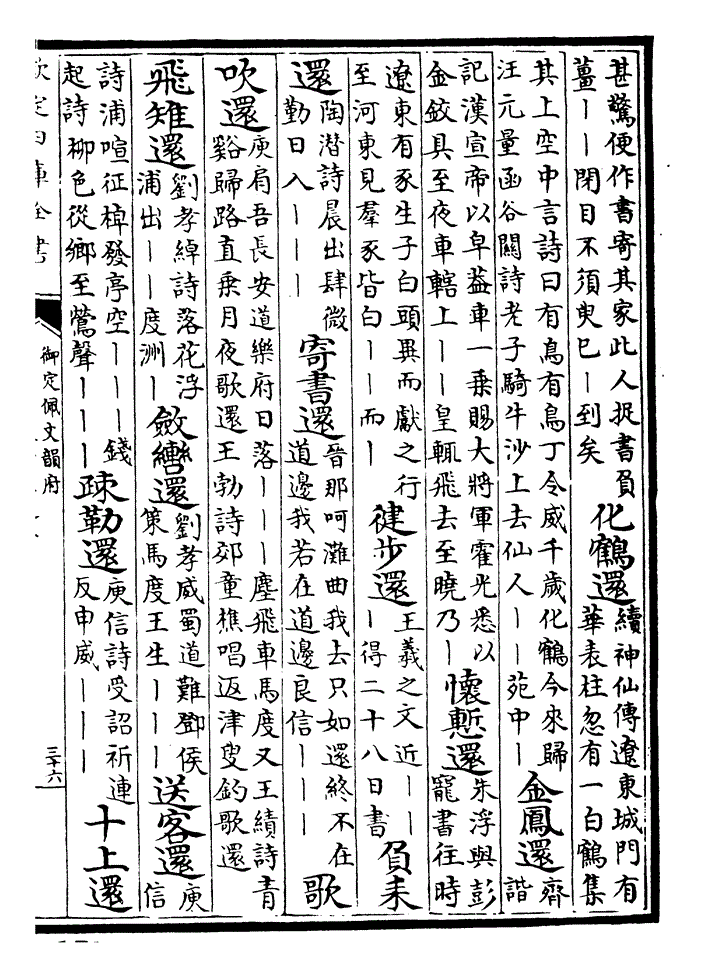 甚驚便作書寄其家此人捉書負
薑丨丨閉目不須臾已丨到矣
化鶴還
續神仙傳遼東城門有
華表柱忽有一白鶴集
其上空中言詩曰有鳥有鳥丁令威千歲化鶴今來歸
汪元量函谷關詩老子騎牛沙上去仙人丨丨苑中丨
金鳳還
齊
諧
記漢宣帝以皁葢車一乗賜大將軍霍光悉以
金鉸具至夜車轄上丨丨皇輒飛去至曉乃丨
懷慙還
朱浮與彭
寵書往時
遼東有豕生子白頭異而獻之行
至河東見羣豕皆白丨丨而丨
徤步還
王羲之文近丨丨
丨得二十八日書
負耒
還
陶潛詩晨出肆微
勤日入丨丨丨
寄書還
晉那呵灘曲我去只如還終不在
道邊我若在道邊良信丨丨丨
歌
吹還
庾肩吾長安道樂府日落丨丨丨塵飛車馬度又王績詩青
谿歸路直乗月夜歌還王勃詩郊童樵唱返津叟釣歌還
飛雉還
劉孝綽詩落花浮
浦出丨丨度洲丨
斂轡還
劉孝威蜀道難鄧侯
策馬度王生丨丨丨
送客還
庾
信
詩浦喧征棹發亭空丨丨丨錢
起詩柳色從鄉至鶯聲丨丨丨
疎勒還
庾信詩受詔祈連
反申威丨丨丨
十上還
欽定四庫全書
御定佩文韻府
三十六